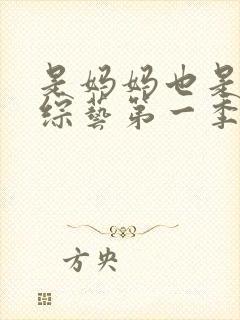 是妈妈也是
综藝第一季
方央